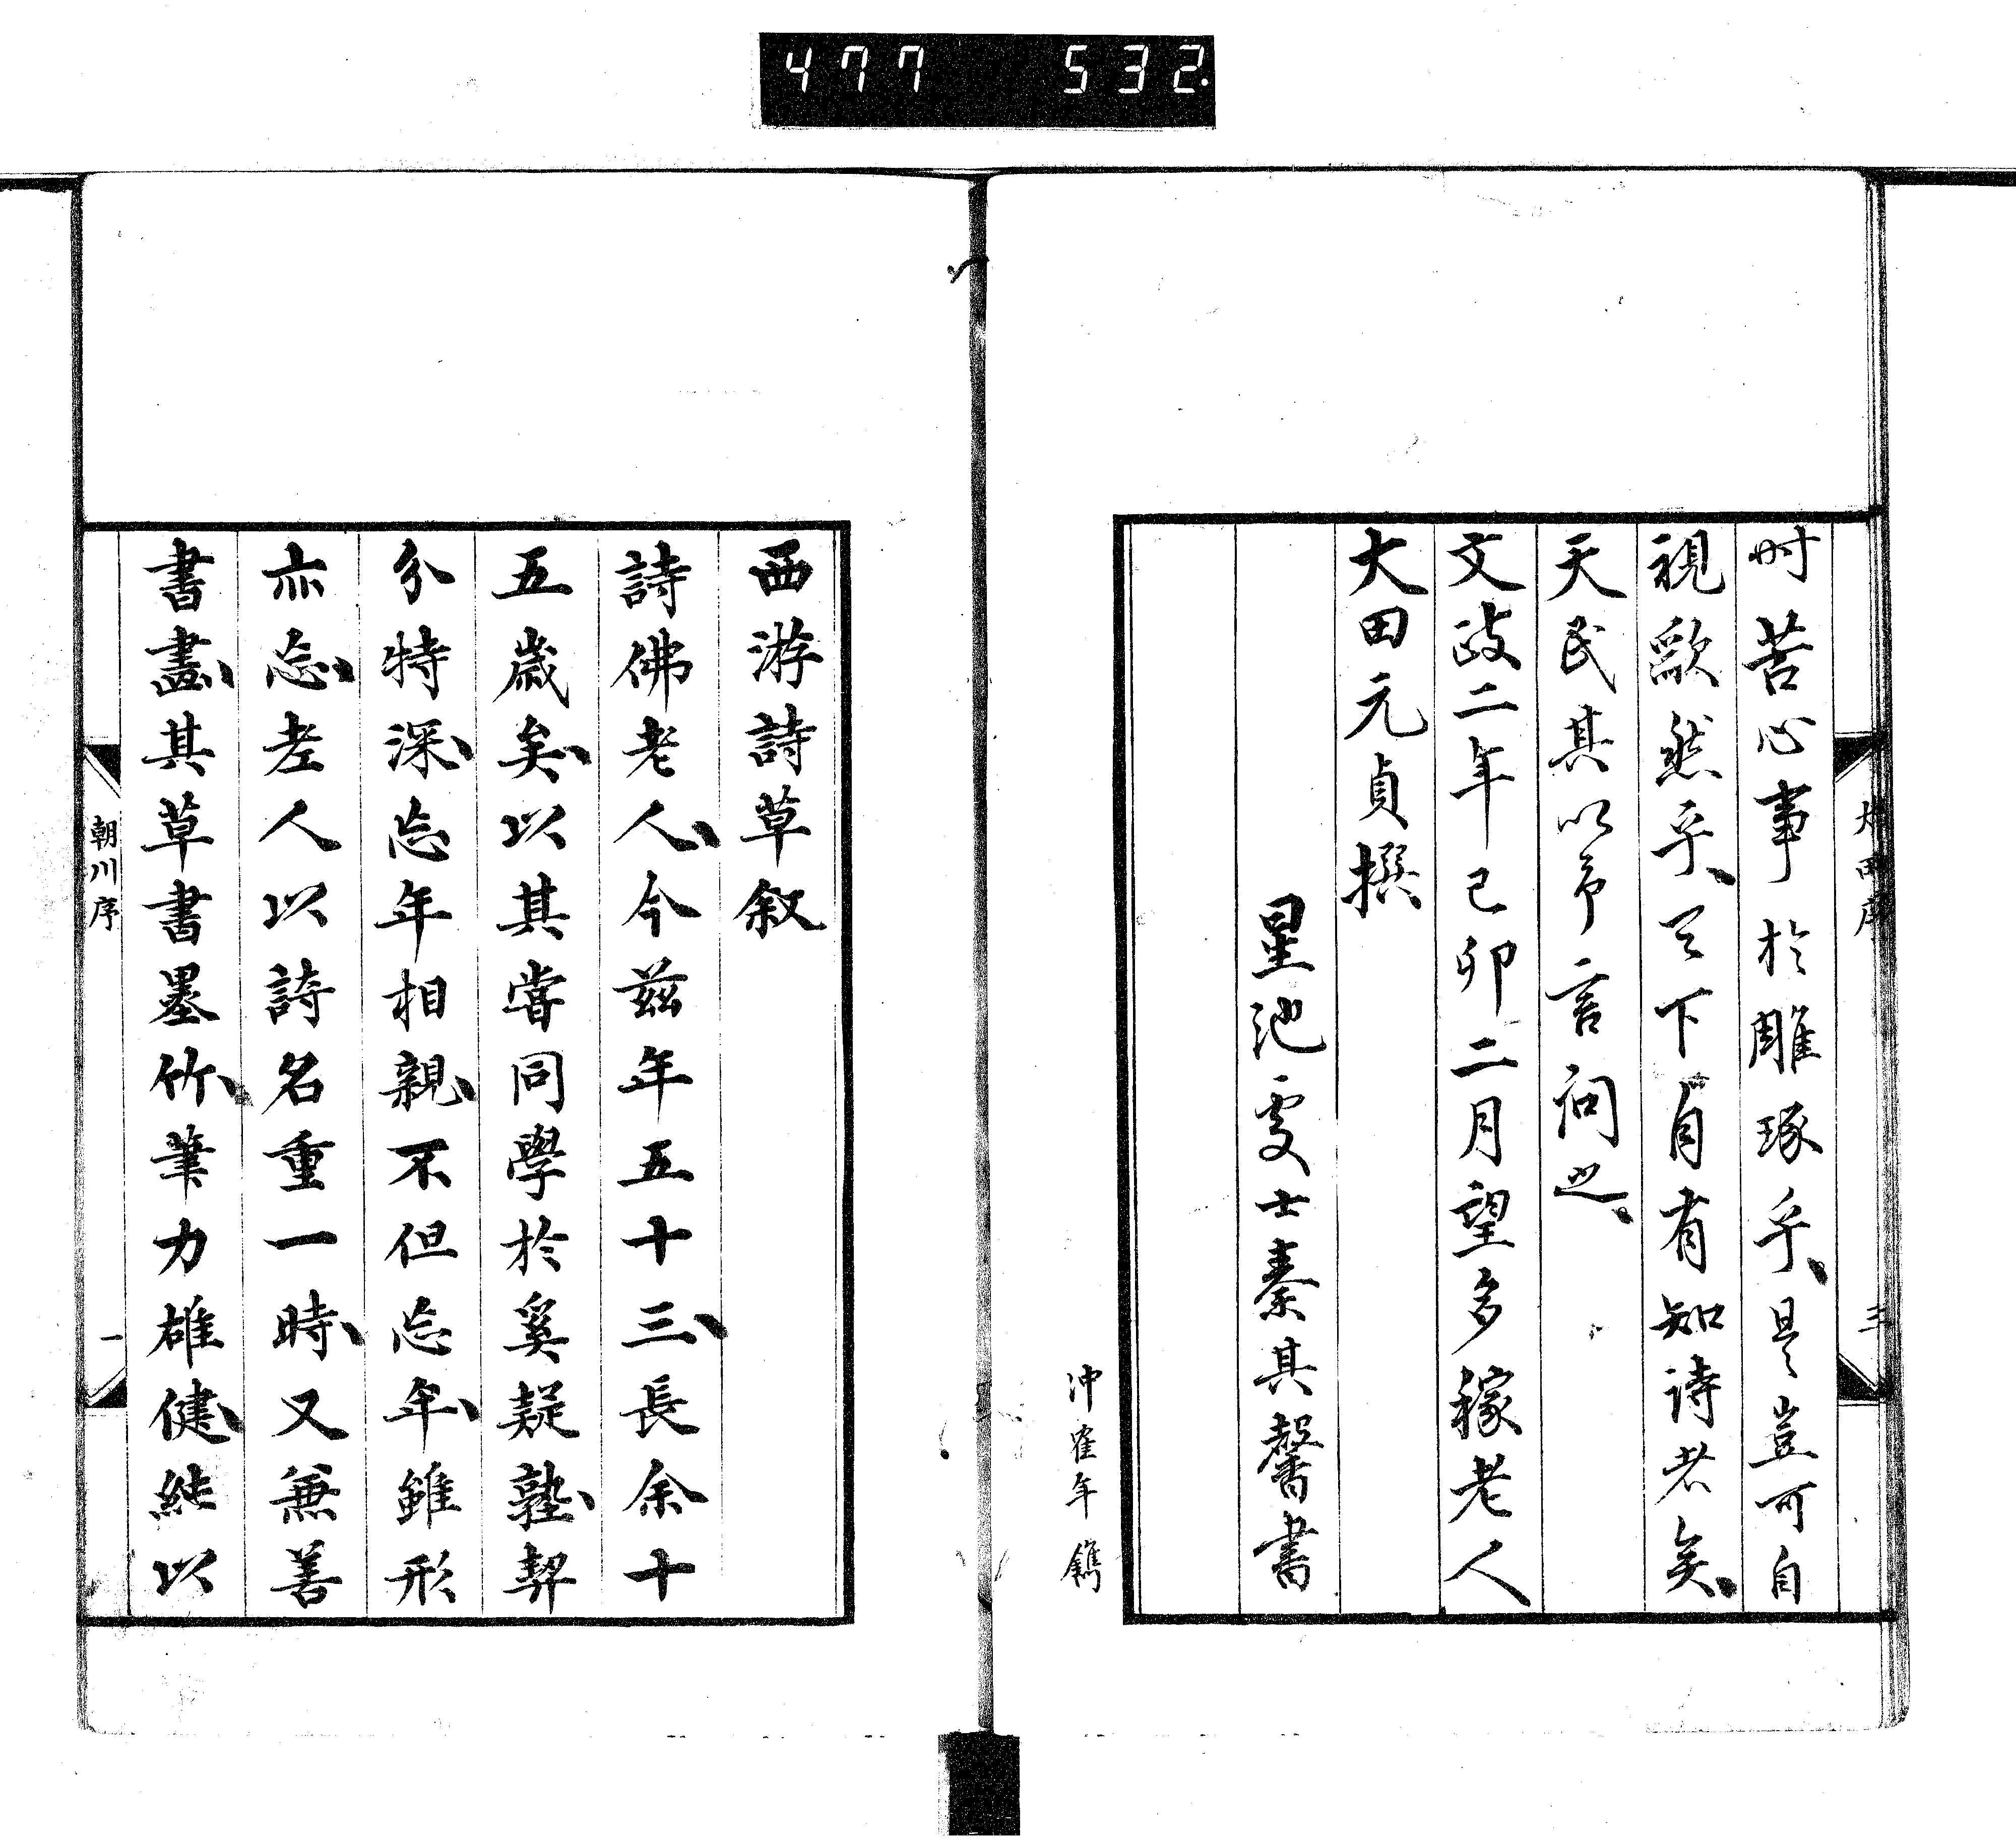 477 532.
時苦心事於雕琢乎、是豈可自
視歉然乎、天下自有知詩者矣、
天民其以予言問之、
文政二年己卯二月望多稼老人
大田元貞撰
星池處士秦其馨書
大田序
三
年鐫
西游詩草叙
詩佛老人、今茲年五十三、長余十
五歲矣、以其嘗同學於奚疑塾、契
分特深、忘年相親、不但忘年、雖形
亦忘、老人以詩名重一時、又兼善
書畫、其草書墨竹、筆力雄健、絕以
朝川序
一